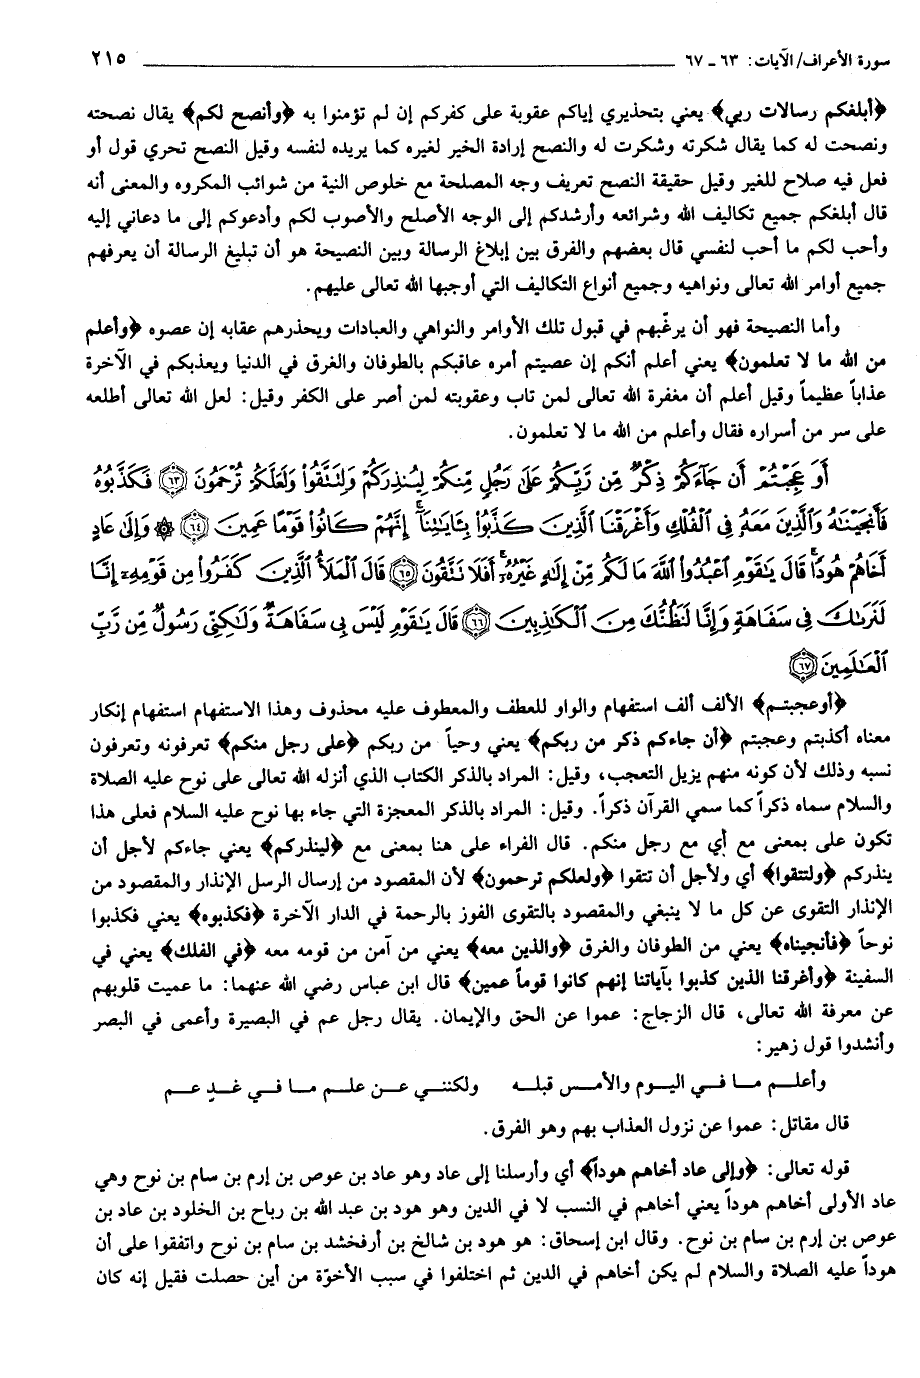 سورة الأعراف/ الآيات: ٦٣ ـ ٦٧ ٢١٥
﴿أبلغكم رسالات ربي﴾ يعني بتحذيري إياكم عقوبة على كفركم إن لم تؤمنوا به ﴿وأنصح لكم﴾ يقال نصحته
ونصحت له كما يقال شكرته وشكرت له والنصح إرادة الخير لغيره كما يريده لنفسه وقيل النصح تحري قول أو
فعل فيه صلاح للغير وقيل حقيقة النصح تعريف وجه المصلحة مع خلوص النية من شوائب المكروه والمعنى أنه
قال أبلغكم جميع تكاليف الله وشرائعه وأرشدكم إلى الوجه الأصلح والأصوب لكم وأدعوكم إلى ما دعاني إليه
وأحب لكم ما أحب لنفسي قال بعضهم والفرق بين إبلاغ الرسالة وبين النصيحة هو أن تبليغ الرسالة أن يعرفهم
جميع أوامر الله تعالى ونواهيه وجميع أنواع التكاليف التي أوجبها الله تعالى عليهم.
وأما النصيحة فهو أن يرغّبهم في قبول تلك الأوامر والنواهي والعبادات ويحذرهم عقابه إن عصوه ﴿وأعلم
من الله ما لا تعلمون﴾ يعني أعلم أنكم إن عصيتم أمره عاقبكم بالطوفان والغرق في الدنيا ويعذبكم في الآخرة
عذاباً عظيماً وقيل أعلم أن مغفرة الله تعالى لمن تاب وعقوبته لمن أصر على الكفر وقيل: لعل الله تعالى أطلعه
على سر من أسراره فقال وأعلم من الله ما لا تعلمون.
أَوَ عَجِبْتُمْ أَن جَآءَكُمْ ذِكْرٌ مِّن رَّبِّكُمْ عَلَىٰ رَجُلٍ مِّنكُمْ لِيُنذِرَكُمْ وَلِتَتَّقُوا۟ وَلَعَلَّكُمْ تُرْحَمُونَ ﴿٦٣﴾ فَكَذَّبُوهُ
فَأَنجَيْنَٰهُ وَٱلَّذِينَ مَعَهُۥ فِى ٱلْفُلْكِ وَأَغْرَقْنَا ٱلَّذِينَ كَذَّبُوا۟ بِـَٔايَٰتِنَآ ۚ إِنَّهُمْ كَانُوا۟ قَوْمًا عَمِينَ ﴿٦٤﴾ ۞ وَإِلَىٰ عَادٍ
أَخَاهُمْ هُودًا ۗ قَالَ يَٰقَوْمِ ٱعْبُدُوا۟ ٱللَّهَ مَا لَكُم مِّنْ إِلَٰهٍ غَيْرُهُۥٓ ۚ أَفَلَا تَتَّقُونَ ﴿٦٥﴾ قَالَ ٱلْمَلَأُ ٱلَّذِينَ كَفَرُوا۟ مِن قَوْمِهِۦٓ إِنَّا
لَنَرَىٰكَ فِى سَفَاهَةٍ وَإِنَّا لَنَظُنُّكَ مِنَ ٱلْكَٰذِبِينَ ﴿٦٦﴾ قَالَ يَٰقَوْمِ لَيْسَ بِى سَفَاهَةٌ وَلَٰكِنِّى رَسُولٌ مِّن رَّبِّ
ٱلْعَٰلَمِينَ ﴿٦٧﴾
﴿أوعجبتم﴾ الألف ألف استفهام والواو للعطف والمعطوف عليه محذوف وهذا الاستفهام استفهام إنكار
معناه أكذبتم وعجبتم ﴿أن جاءكم ذكر من ربكم﴾ يعني وحياً من ربكم ﴿على رجل منكم﴾ تعرفونه وتعرفون
نسبه وذلك لأن كونه منهم يزيل التعجب، وقيل: المراد بالذكر الكتاب الذي أنزله الله تعالى على نوح عليه الصلاة
والسلام سماه ذكراً كما سمي القرآن ذكراً. وقيل: المراد بالذكر المعجزة التي جاء بها نوح عليه السلام فعلى هذا
تكون على بمعنى مع أي مع رجل منكم. قال الفراء على هنا بمعنى مع ﴿لينذركم﴾ يعني جاءكم لأجل أن
ينذركم ﴿ولتتقوا﴾ أي ولأجل أن تتقوا ﴿ولعلكم ترحمون﴾ لأن المقصود من إرسال الرسل الإنذار والمقصود من
الإنذار التقوى عن كل ما لا ينبغي والمقصود بالتقوى الفوز بالرحمة في الدار الآخرة ﴿فكذبوه﴾ يعني فكذبوا
نوحاً ﴿فأنجيناه﴾ يعني من الطوفان والغرق ﴿والذين معه﴾ يعني من آمن من قومه معه ﴿في الفلك﴾ يعني في
السفينة ﴿وأغرقنا الذين كذبوا بآياتنا إنهم كانوا قوماً عمين﴾ قال ابن عباس رضي الله عنهما: ما عميت قلوبهم
عن معرفة الله تعالى، قال الزجاج: عموا عن الحق والإيمان. يقال رجل عم في البصيرة وأعمى في البصر
وأنشدوا قول زهير:
وأعلـــم مـــا فـــي اليـــوم والأمـــس قبلـــه ولكننـــي عـــن علـــم مـــا فـــي غـــدٍ عـــم
قال مقاتل: عموا عن نزول العذاب بهم وهو الفرق.
قوله تعالى: ﴿وإلى عاد أخاهم هوداً﴾ أي وأرسلنا إلى عاد وهو عاد بن عوص بن إرم بن سام بن نوح وهي
عاد الأولى أخاهم هوداً يعني أخاهم في النسب لا في الدين وهو هود بن عبد الله بن رباح بن الخلود بن عاد بن
عوص بن إرم بن سام بن نوح. وقال ابن إسحاق: هو هود بن شالخ بن أرفخشد بن سام بن نوح واتفقوا على أن
هوداً عليه الصلاة والسلام لم يكن أخاهم في الدين ثم اختلفوا في سبب الأخوّة من أين حصلت فقيل إنه كان